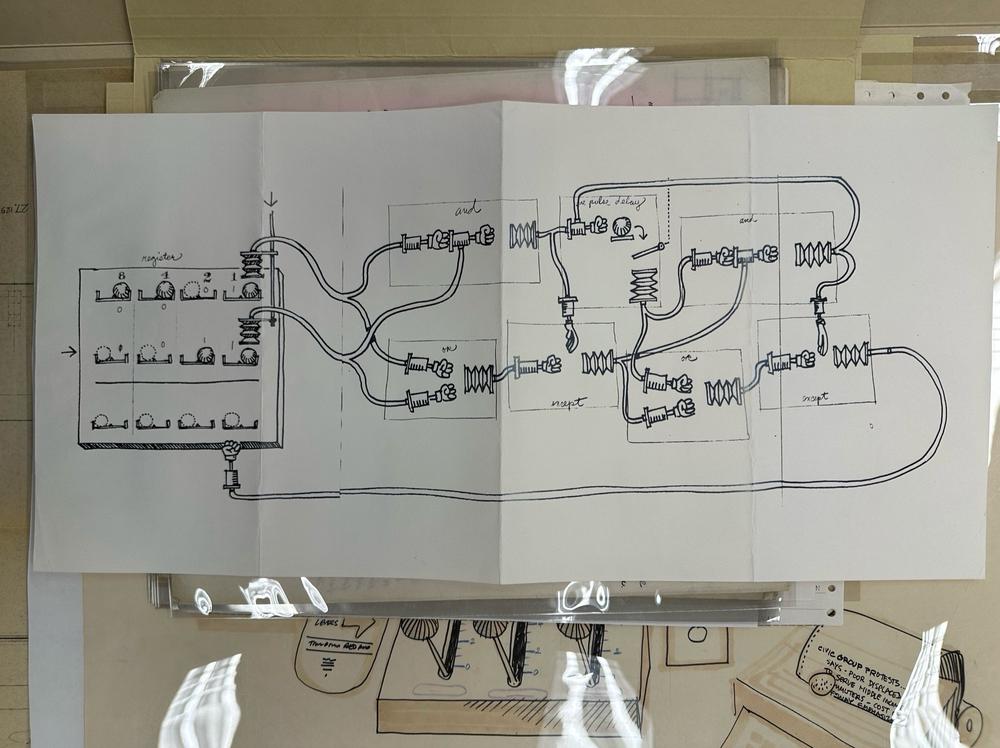 and
pulse delay
and
register
8 4 2 1
0
0
0 0 1
or
or
except
except
LEVERS
2
0
2
0
CIVIC GROUP PROTESTS
SAYS - POOR DISPLACED
TO SERVE MIDDLE INCOME